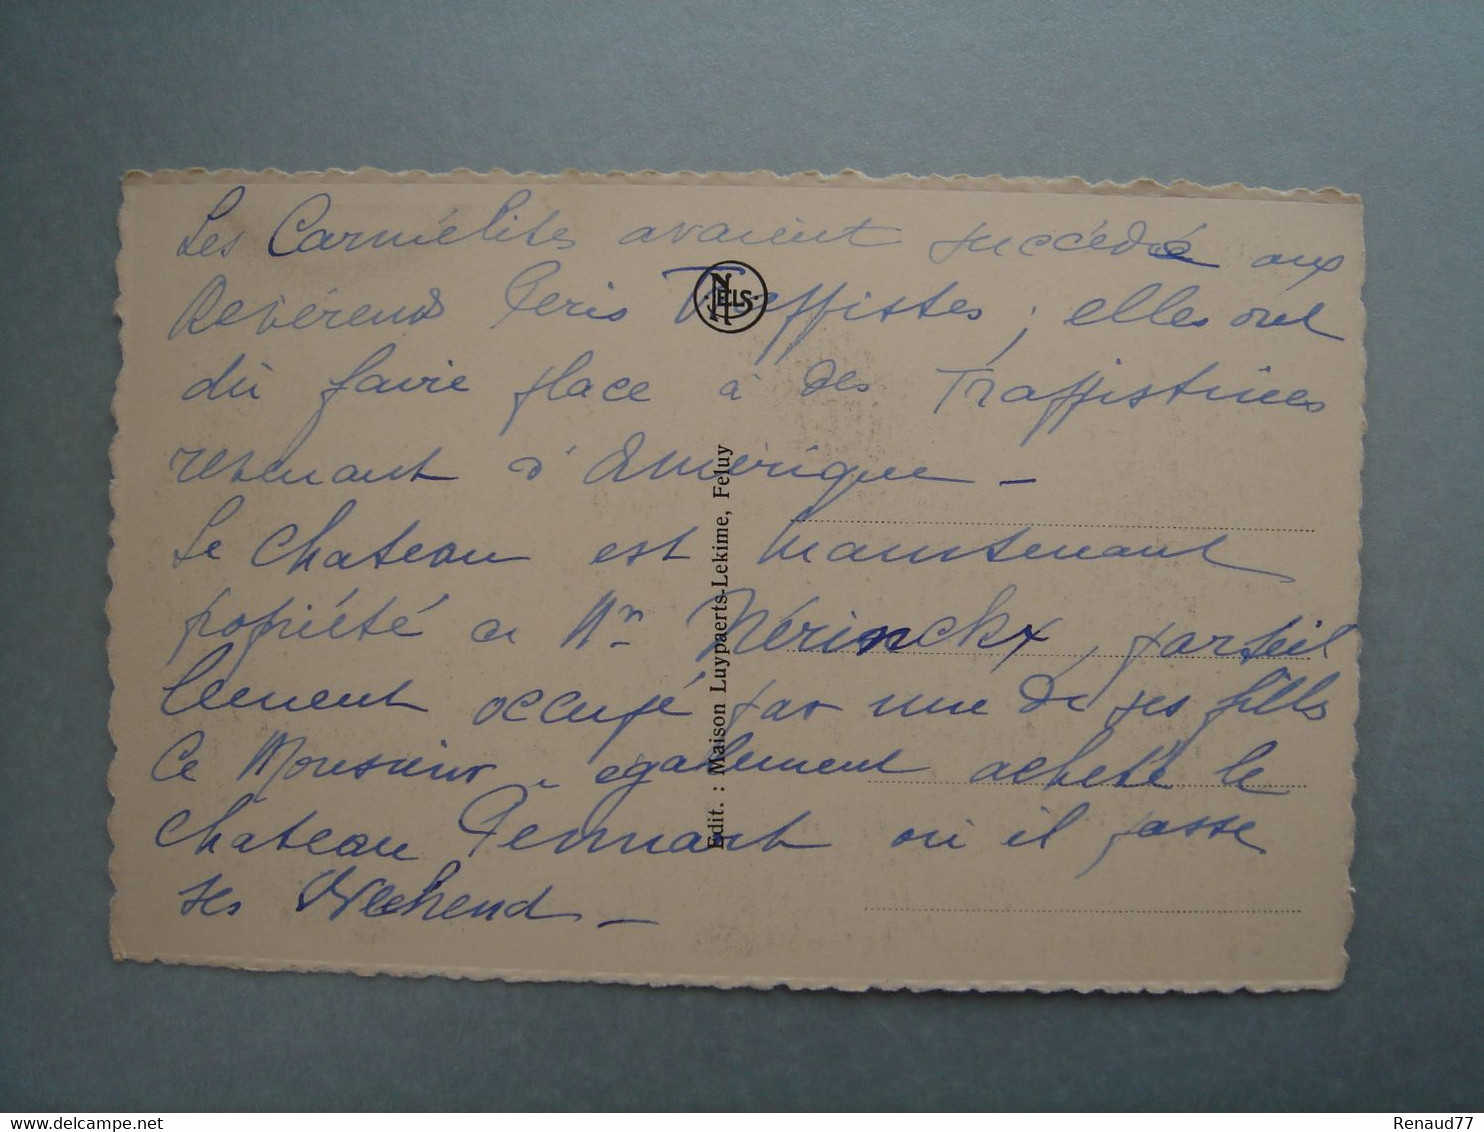 Les Carmélites avaient succédé aux
Révérends Peris Trappistes ; elles ont
dû faire place à des Trappistines
revenant d'Amérique _
Le chateau est maintenant
propriété de Mr Mérinckx, partiel
lement occupé par une de ses filles
Ce Monsieur a également acheté le
chateau Pennart où il passe
ses Weekend _
NELS
Edit. : Maison Luypaerts-Lekime, Feluy
delcampe.net
Renaud77